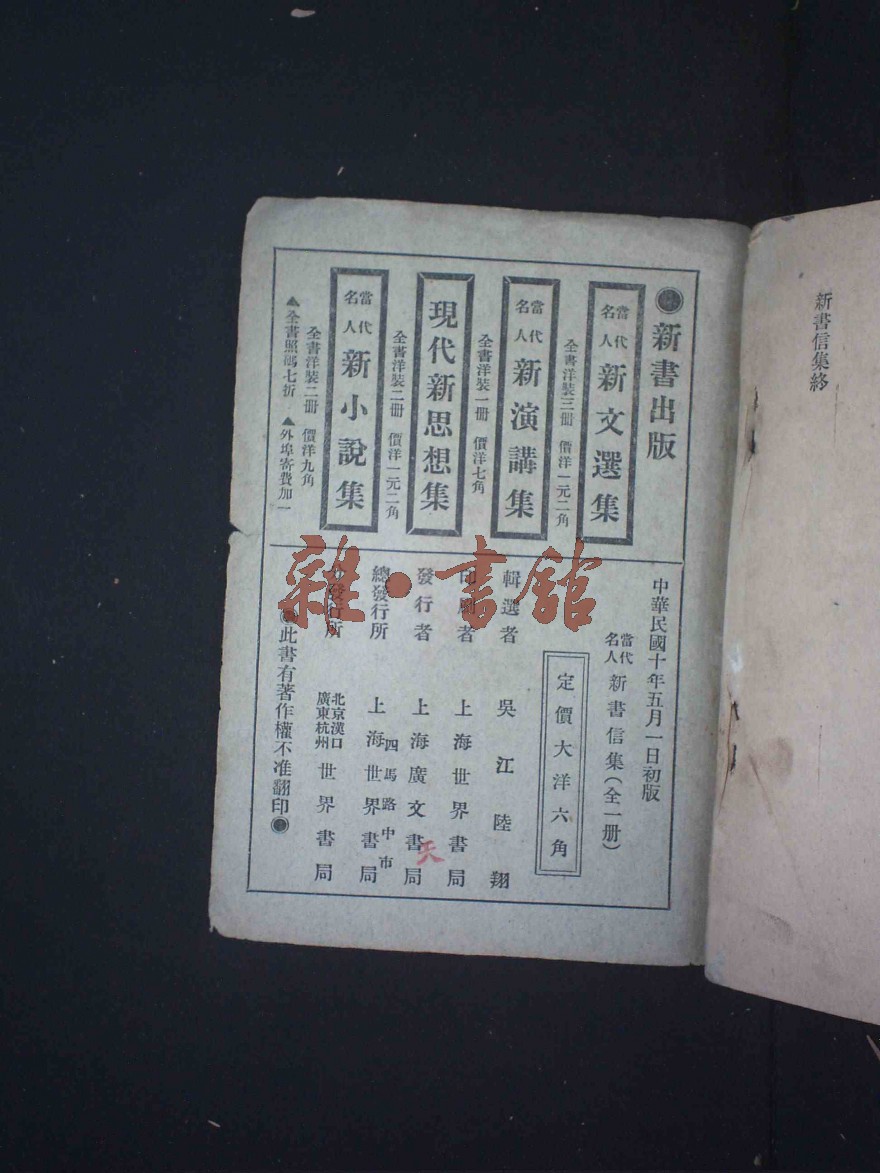 新書信集終
新書出版
當代名人新文選集
全書洋裝三冊 價洋一元二角
當代名人新演講集
全書洋裝一冊 價洋七角
現代新思想集
全書洋裝二冊 價洋一元二角
當代名人新小說集
全書洋裝二冊 價洋九角
▲全書照碼七折 ▲外埠寄費加一
中華民國十年五月一日初版
當代名人新書信集(全一冊)
定價大洋六角
輯選者 吳江陸翔
印刷者 上海世界書局
發行者 上海廣文書局
四馬路中市
總發行所 上海世界書局
分發行所 北京漢口廣東杭州世界書局
此書有著作權不准翻印
天
雜·書館